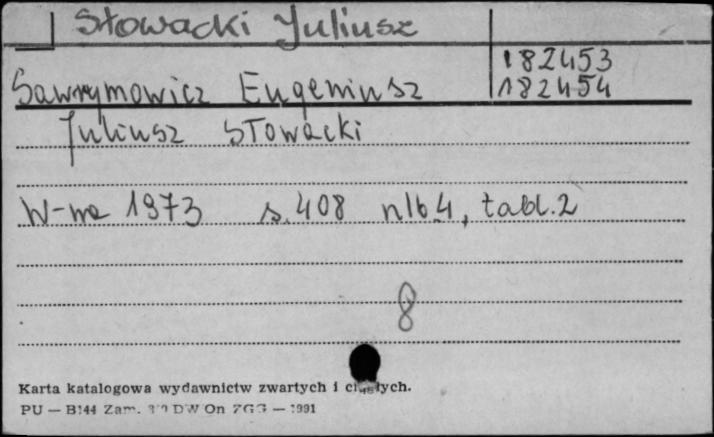 Słowacki Juliusz
182453
182454
Sawrymowicz Eugeniusz
Juliusz Słowacki
W-wa 1973 s. 408 nlb 4, tabl. 2
8
Karta katalogowa wydawnictw zwartych i ciągłych.
PU — B144 Zam. DW On ZGG — 1991